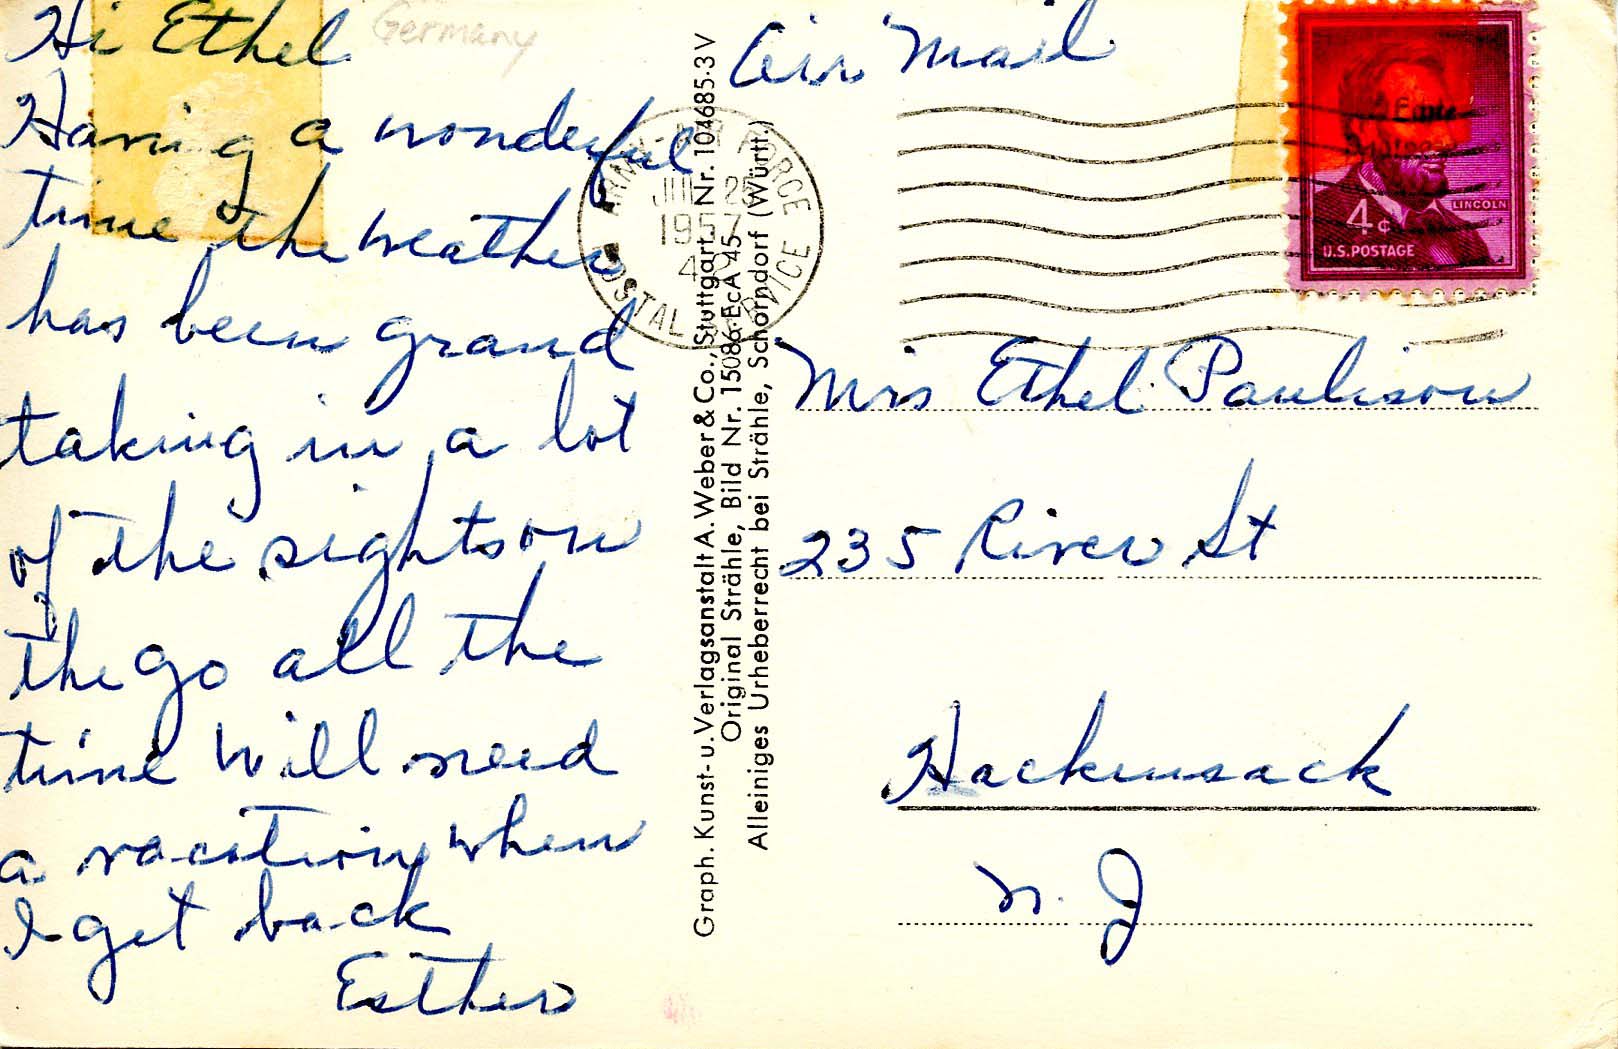 Hi Ethel
Germany
Having a wonderful
time the weather
has been grand
taking in a lot
of the sights on
the go all the
time will need
a vacation when
I get back
Esther
Graph. Kunst- u. Verlagsanstalt A. Weber & Co., Stuttgart Nr. 104685·3V
Original Strähle, Bild Nr. 15086 EcA 45
Alleiniges Urheberrecht bei Strähle, Schorndorf (Württ.)
Air Mail
ARMY-AIR FORCE
JUL 25
1957
POSTAL SERVICE
LINCOLN
4¢
U.S. POSTAGE
Mrs Ethel Paulison
235 River St
Hackensack
N. J